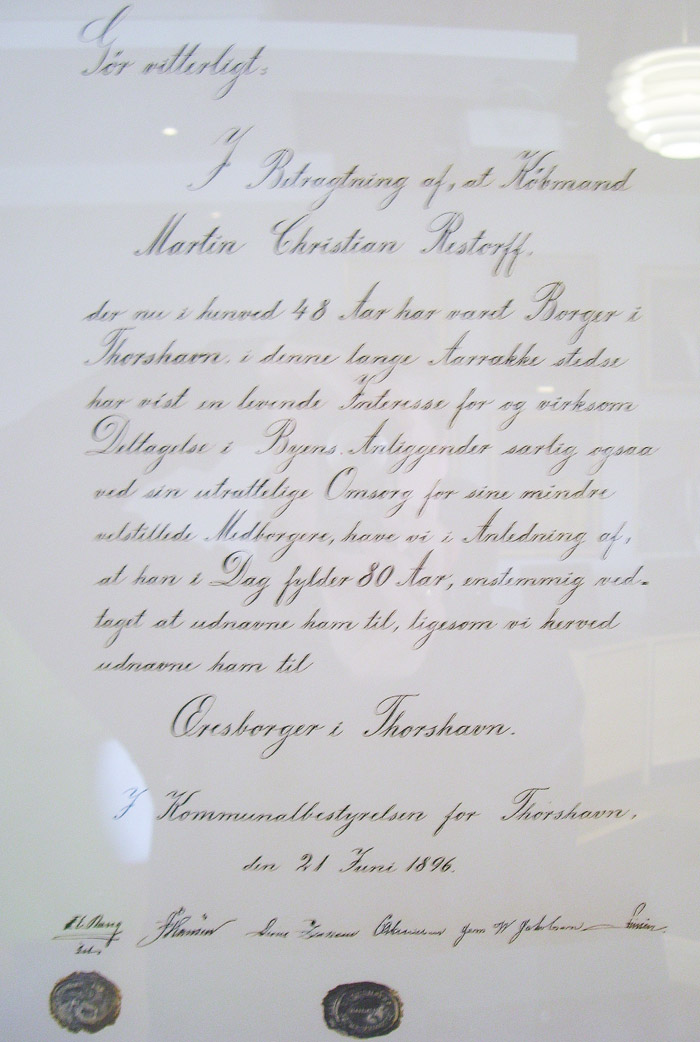 Gör vitterligt:
I Betragtning af, at Köbmand
Martin Christian Restorff,
der nu i henved 48 Aar har været Borger i
Thorshavn, i denne lange Aarrække stedse
har vist en levende Interesse for og virksom
Deltagelse i Byens Anliggender særlig ogsaa
ved sin utrættelige Omsorg for sine mindre
velstillede Medborgere, have vi i Anledning af,
at han i Dag fylder 80 Aar, enstemmig ved=
taget at udnævne ham til, ligesom vi herved
udnævne ham til
Æresborger i Thorshavn.
I Kommunalbestyrelsen for Thorshavn,
den 21 Juni 1896.